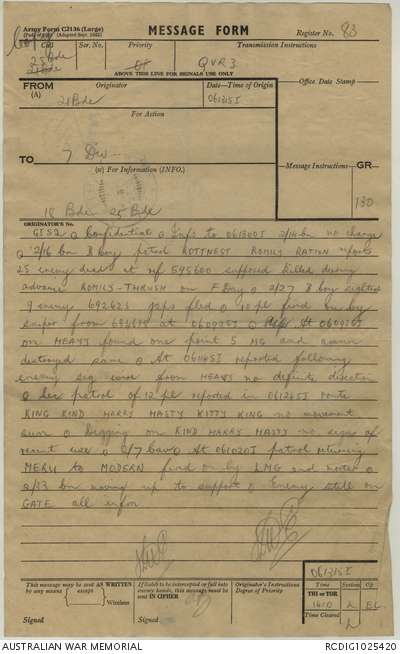 Army Form C2136 (Large)
MESSAGE FORM
Register No. 83
Call
Ser. No.
Priority
Transmission Instructions
25 Bde
21 Bde
QVR3
ABOVE THIS LINE FOR SIGNALS USE ONLY
FROM
(A)
Originator
Date—Time of Origin
Office Date Stamp
21 Bde
061315I
For Action
TO
7 Div
(W) For Information (INFO.)
Message Instructions
GR
130
18 Bde 25 Bde
ORIGINATOR'S No.
G152 o Confidential o Info to 061300I 2/14 bn no change
o 2/16 bn B coy patrol ROTTNEST ROMILY RATION reports
25 enemy dead at ref 595600 supposed killed during
advance ROMILY-THRUSH on F Day o 2/27 B coy sighted
9 enemy 692623 japs fled o 10 pl fired on by
sniper from at 060905I o At
on HEAVY found one point 5 MG and ammn
destroyed same o At 061145I reported following
enemy sig wire from HEAVY no definite direction
o patrol of 12 pl reported in 061245I route
KING KIND HARRY HASTY KITTY KING no movement
seen o Digging on KIND HARRY HASTY no sign of
recent use o 2/7 cav o At 061020I patrol returning
MERU to MODERN fired on by LMG and mortar o
2/33 bn moving up to support o Enemy still on
GATE all infm
061315I
This message may be sent AS WRITTEN
by any means except Wireless
If liable to be intercepted or fall into
enemy hands, this message must be
sent IN CIPHER
Originator's Instructions
Degree of Priority
Time
System
Op
THI or TOR
1410
L
Time Cleared
L
Signed
Signed
AUSTRALIAN WAR MEMORIAL
RCDIG1025420